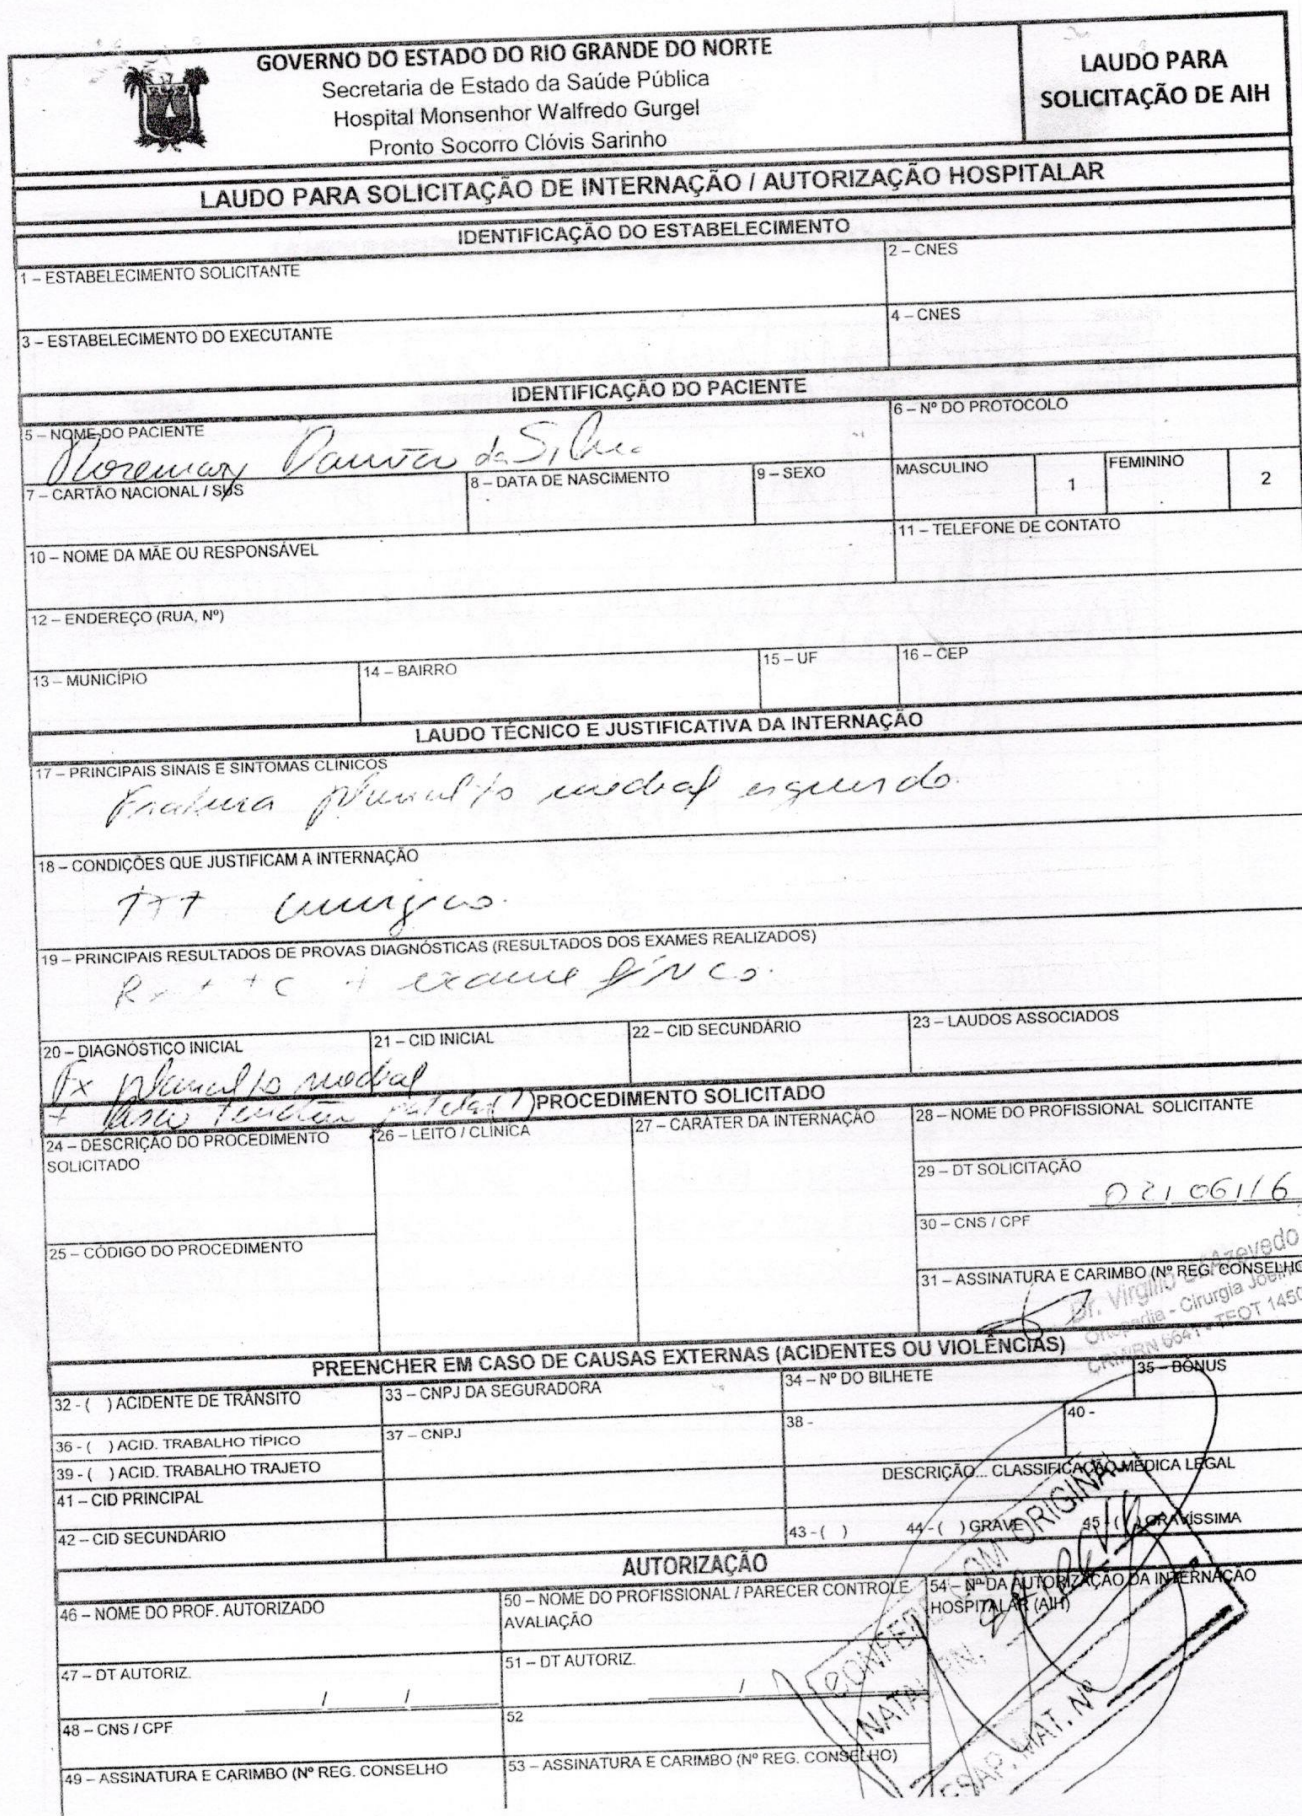 GOVERNO DO ESTADO DO RIO GRANDE DO NORTE
Secretaria de Estado da Saúde Pública
Hospital Monsenhor Walfredo Gurgel
Pronto Socorro Clóvis Sarinho
LAUDO PARA
SOLICITAÇÃO DE AIH
LAUDO PARA SOLICITAÇÃO DE INTERNAÇÃO / AUTORIZAÇÃO HOSPITALAR
IDENTIFICAÇÃO DO ESTABELECIMENTO
1 – ESTABELECIMENTO SOLICITANTE
2 – CNES
3 – ESTABELECIMENTO DO EXECUTANTE
4 – CNES
IDENTIFICAÇÃO DO PACIENTE
5 – NOME DO PACIENTE
da Silva
6 – Nº DO PROTOCOLO
7 – CARTÃO NACIONAL / SUS
8 – DATA DE NASCIMENTO
9 – SEXO
MASCULINO
1
FEMININO
2
10 – NOME DA MÃE OU RESPONSÁVEL
11 – TELEFONE DE CONTATO
12 – ENDEREÇO (RUA, Nº)
13 – MUNICÍPIO
14 – BAIRRO
15 – UF
16 – CEP
LAUDO TÉCNICO E JUSTIFICATIVA DA INTERNAÇÃO
17 – PRINCIPAIS SINAIS E SINTOMAS CLÍNICOS
Fratura planalto medial esquerdo
18 – CONDIÇÕES QUE JUSTIFICAM A INTERNAÇÃO
TTT cirurgico.
19 – PRINCIPAIS RESULTADOS DE PROVAS DIAGNÓSTICAS (RESULTADOS DOS EXAMES REALIZADOS)
+ exame físico.
20 – DIAGNÓSTICO INICIAL
Fx planalto medial
+ lesão tendão patelar (?)
21 – CID INICIAL
22 – CID SECUNDÁRIO
23 – LAUDOS ASSOCIADOS
PROCEDIMENTO SOLICITADO
24 – DESCRIÇÃO DO PROCEDIMENTO
SOLICITADO
26 – LEITO / CLÍNICA
27 – CARÁTER DA INTERNAÇÃO
28 – NOME DO PROFISSIONAL SOLICITANTE
29 – DT SOLICITAÇÃO
02/06/16
30 – CNS / CPF
25 – CÓDIGO DO PROCEDIMENTO
31 – ASSINATURA E CARIMBO (Nº REG. CONSELHO
Dr. Virgílio Azevedo
Ortopedia - Cirurgia Joelho
CRM/RN 6641 - TEOT 1450
PREENCHER EM CASO DE CAUSAS EXTERNAS (ACIDENTES OU VIOLÊNCIAS)
32 - ( ) ACIDENTE DE TRÂNSITO
33 – CNPJ DA SEGURADORA
34 – Nº DO BILHETE
35 – BÔNUS
36 - ( ) ACID. TRABALHO TÍPICO
37 – CNPJ
38 -
40 -
39 - ( ) ACID. TRABALHO TRAJETO
DESCRIÇÃO... CLASSIFICAÇÃO MÉDICA LEGAL
41 – CID PRINCIPAL
42 – CID SECUNDÁRIO
43 - ( )
44 - ( ) GRAVE
45 - ( ) GRAVÍSSIMA
AUTORIZAÇÃO
46 – NOME DO PROF. AUTORIZADO
50 – NOME DO PROFISSIONAL / PARECER CONTROLE
AVALIAÇÃO
54 – Nº DA AUTORIZAÇÃO DA INTERNAÇÃO
HOSPITALAR (AIH)
47 – DT AUTORIZ.
/ /
51 – DT AUTORIZ.
/
48 – CNS / CPF
52
49 – ASSINATURA E CARIMBO (Nº REG. CONSELHO
53 – ASSINATURA E CARIMBO (Nº REG. CONSELHO)
CONFERE COM ORIGINAL
NATAL/RN,
SESAP. MAT. Nº